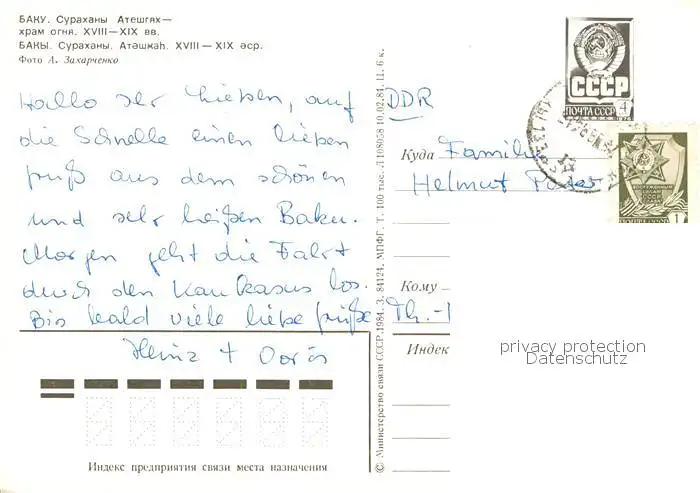 БАКУ. Сураханы Атешгях—
храм огня. XVIII—XIX вв.
БАКЫ. Сураханы. Атәшкаһ. XVIII—XIX әср.
Фото А. Захарченко
Hallo Ihr Lieben, auf
die Schnelle einen lieben
Gruß aus dem schönen
und sehr heißen Baku.
Morgen geht die Fahrt
durch den Kaukasus los.
Bis bald viele liebe Grüße
Heinz + Doris
Индекс предприятия связи места назначения
© Министерство связи СССР, 1984. З. 84124. МПФГ. Т. 100 тыс. Л 108058 10.02.84. Ц. 6 к.
СССР
ПОЧТА СССР 4
1
DDR
Куда Familie
Helmut
Кому
Th.-
Индекс
privacy protection
Datenschutz